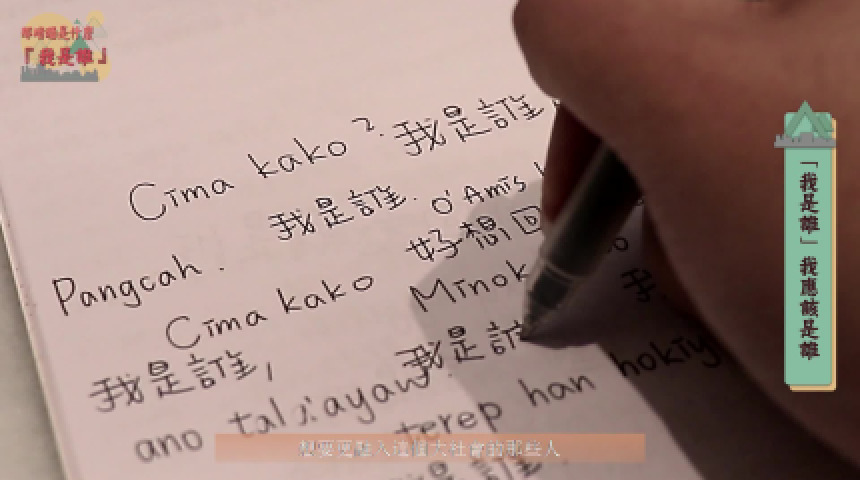 「我是誰」
Cima kako?. 我是誰
我是誰. O'Amis
Pangcah. 好想回
Cima kako Minok
我是誰, 我是
ano talaayaw
terep han
是
「我是誰」我應該是誰
想要更融入這個大社會的那些人